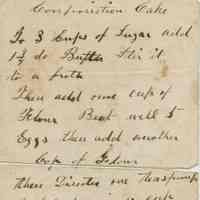 Composistion Cake
To 3 Cups of Sugar add
1½ do Butter Stir it
to a froth
Then add one cup of
Flour Beat well 5
Eggs then add another
Cup of Flour
then Disolve one teaspoonful